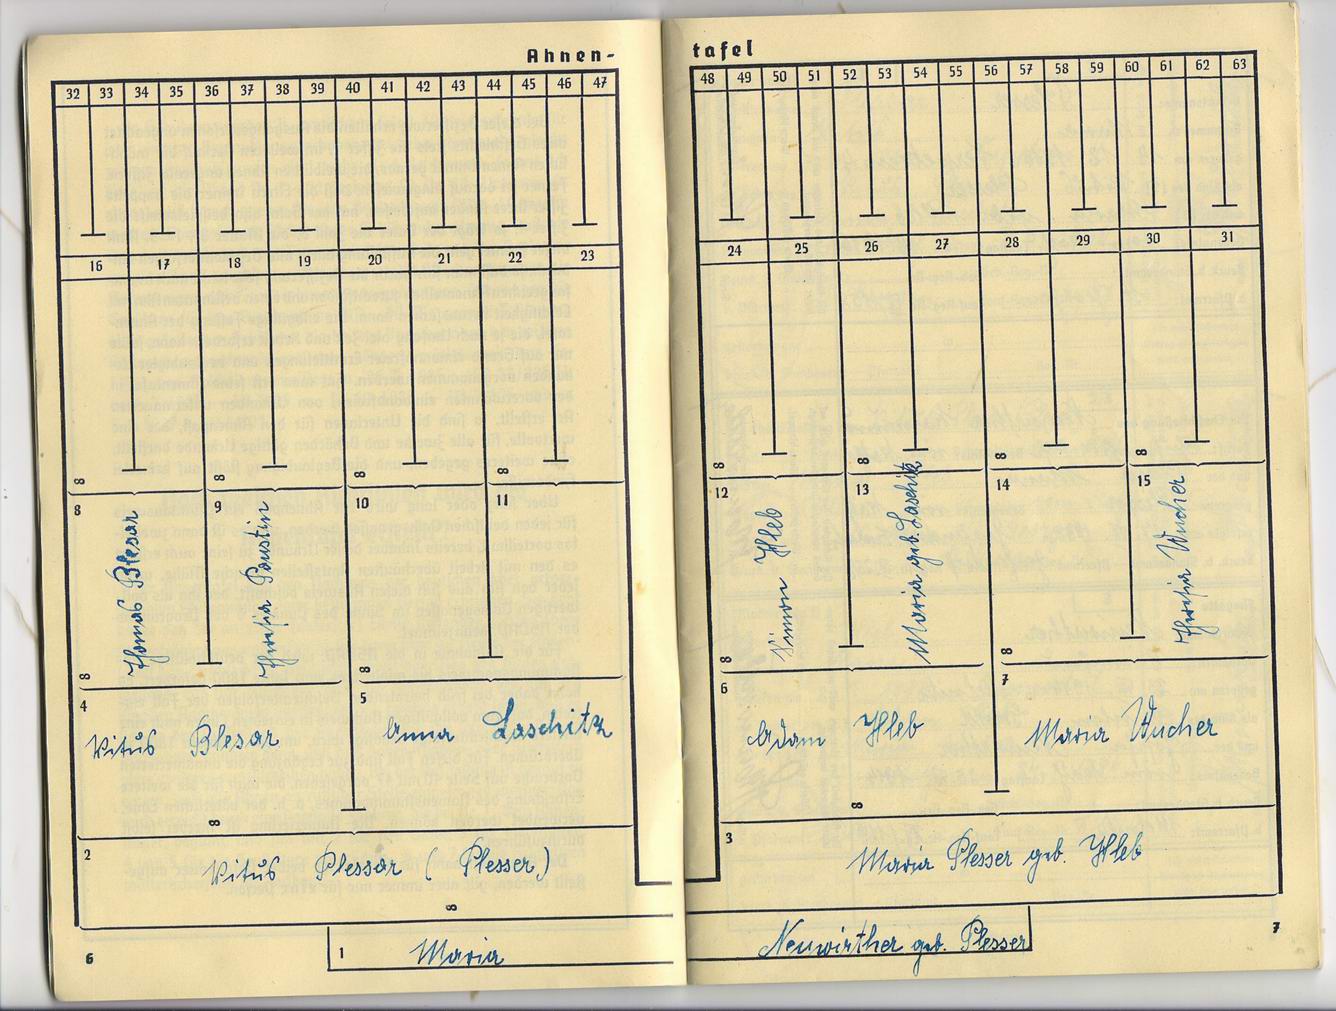 Ahnen-
tafel
32 33 34 35 36 37 38 39 40 41 42 43 44 45 46 47
48 49 50 51 52 53 54 55 56 57 58 59 60 61 62 63
16 17 18 19 20 21 22 23
24 25 26 27 28 29 30 31
8 8 8 8
8 8 8 8
8 9 10 11
12 13 14 15
Thomas Plesar
Theresia Paustin
Simon Hleb
Maria geb. Laschitz
Theresia Wucher
8 8
8 8
4 5
6 7
Vitus Plesar
Anna Laschitz
Adam Hleb
Maria Wucher
8
8
2
3
Vitus Plessar (Plesser)
Maria Plesser geb. Hleb
8
1 Maria
Neuwirther geb. Plesser
6
7